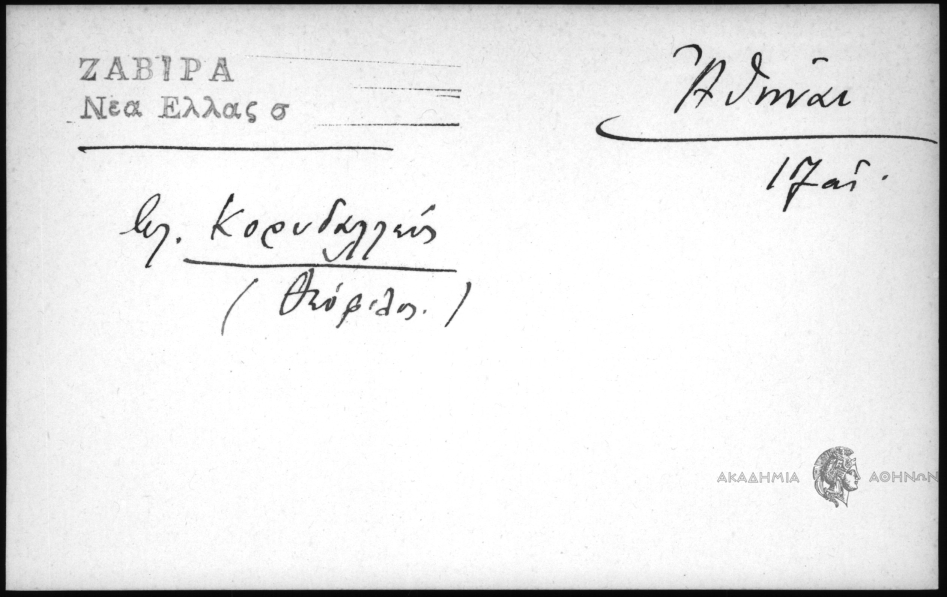 ΖΑΒΙΡΑ
Νέα Ελλας σ
Ἀθῆναι
17 αἰ.
βλ. Κορυδαλλεύς
(Θεόφιλος.)
ΑΚΑΔΗΜΙΑ ΑΘΗΝΩΝ